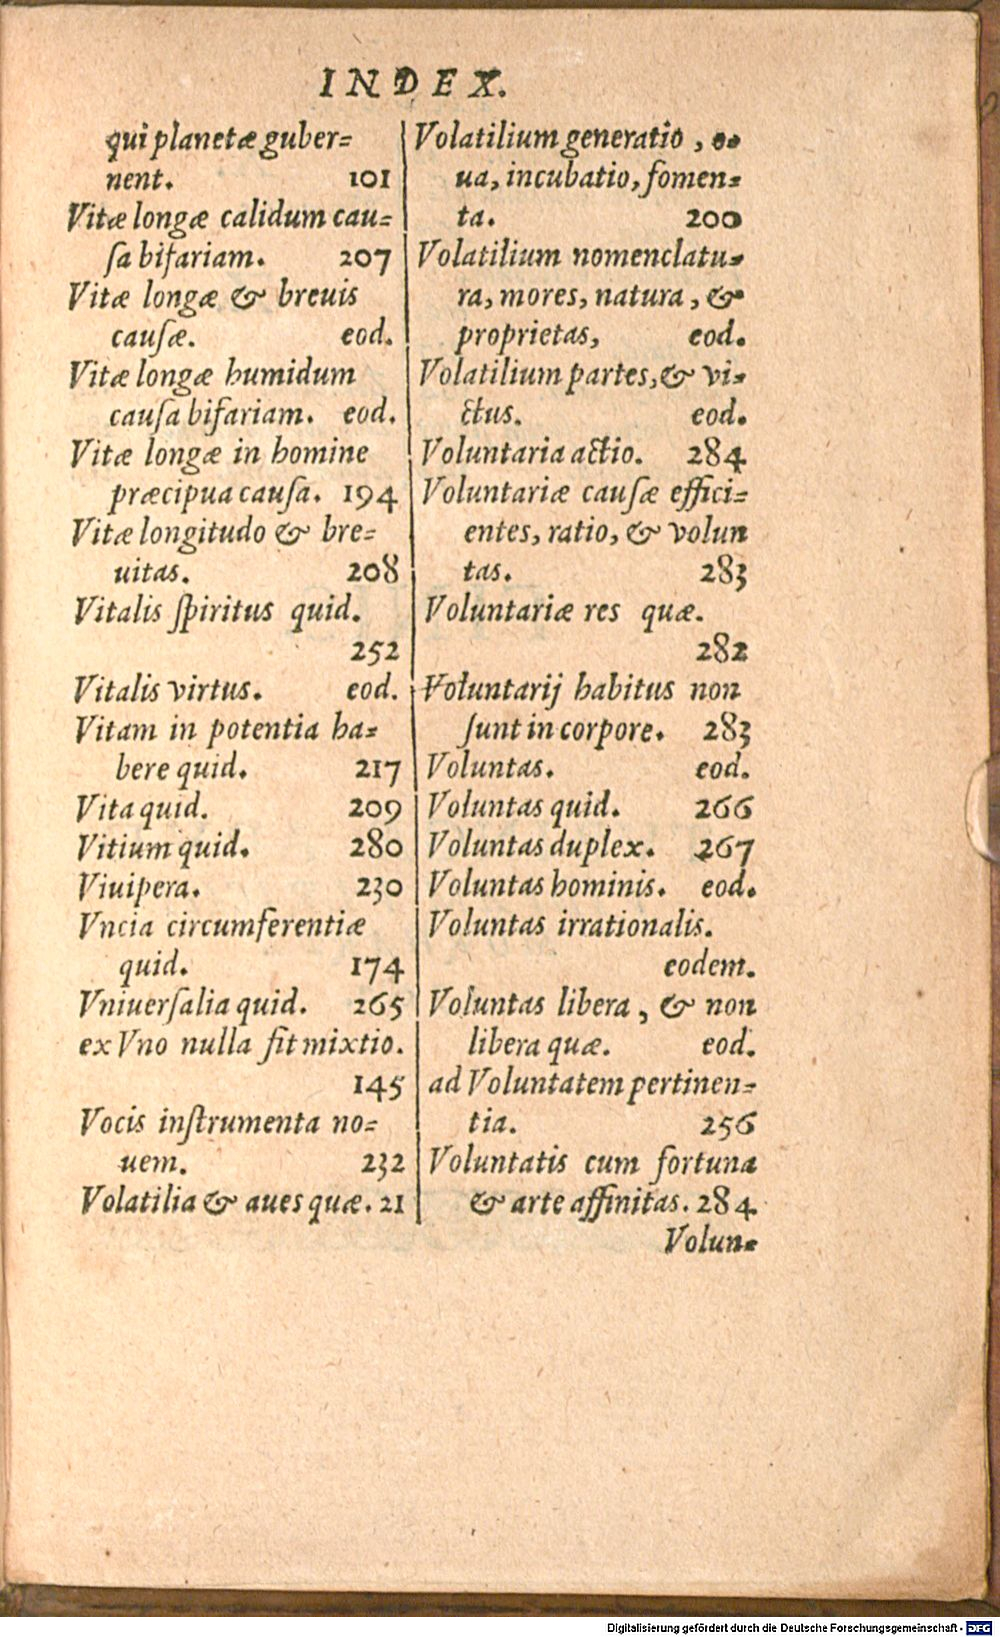 INDEX.
qui planetæ guber=
nent. 101
Vitæ longæ calidum cau=
ſa bifariam. 207
Vitæ longæ & breuis
cauſæ. eod.
Vitæ longæ humidum
cauſa bifariam. eod.
Vitæ longæ in homine
præcipua cauſa. 194
Vitæ longitudo & bre=
uitas. 208
Vitalis ſpiritus quid.
252
Vitalis virtus. eod.
Vitam in potentia ha=
bere quid. 217
Vita quid. 209
Vitium quid. 280
Viuipera. 230
Vncia circumferentiæ
quid. 174
Vniuerſalia quid. 265
ex Vno nulla fit mixtio.
145
Vocis inſtrumenta no=
uem. 232
Volatilia & aues quæ. 21
Volatilium generatio, o=
ua, incubatio, fomen=
ta. 200
Volatilium nomenclatu=
ra, mores, natura, &
proprietas, eod.
Volatilium partes, & vi=
ctus. eod.
Voluntaria actio. 284
Voluntariæ cauſæ effici=
entes, ratio, & volun
tas. 283
Voluntariæ res quæ.
282
Voluntarij habitus non
ſunt in corpore. 283
Voluntas. eod.
Voluntas quid. 266
Voluntas duplex. 267
Voluntas hominis. eod.
Voluntas irrationalis.
eodem.
Voluntas libera, & non
libera quæ. eod.
ad Voluntatem pertinen=
tia. 256
Voluntatis cum fortuna
& arte affinitas. 284
Volun=
Digitalisierung gefördert durch die Deutsche Forschungsgemeinschaft - DFG